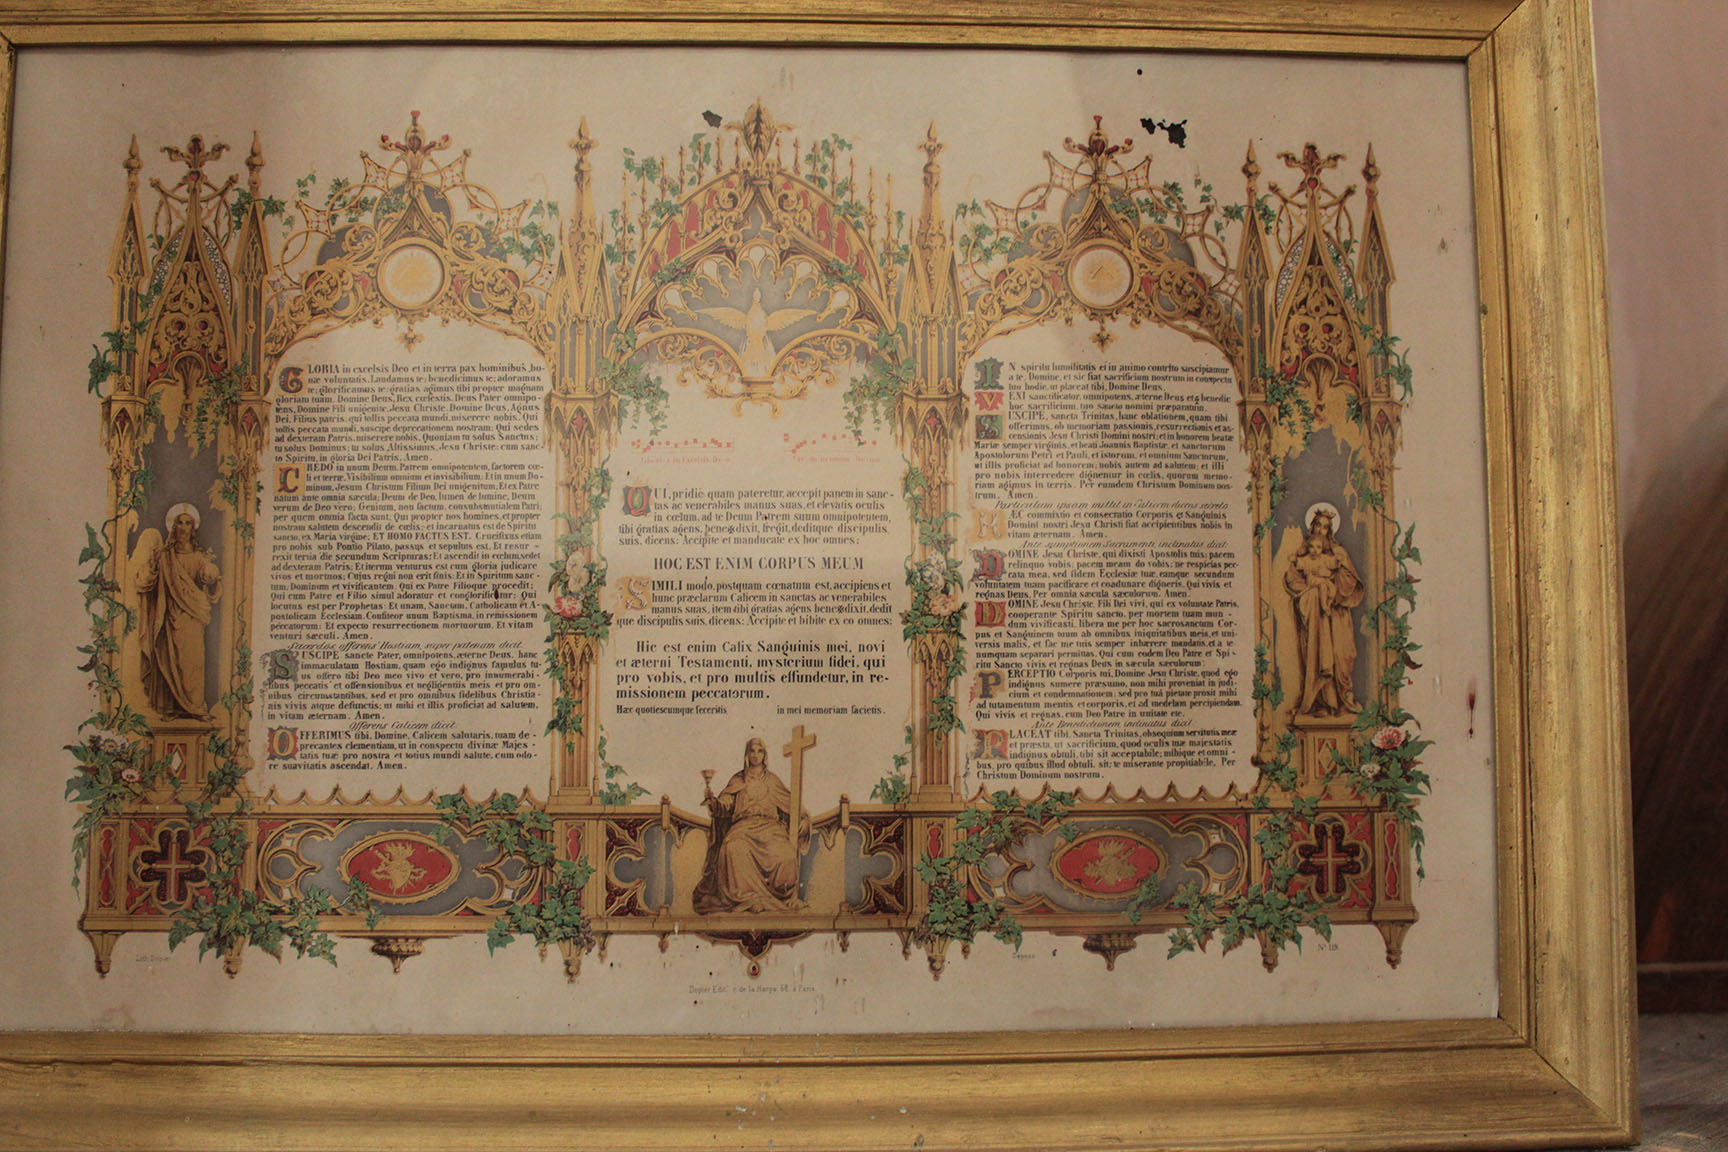 GLORIA in excelsis Deo et in terra pax hominibus, bo-
næ voluntatis. Laudamus te; benedicimus te; adoramus
te; glorificamus te; gratias agimus tibi propter magnam
gloriam tuam. Domine Deus, Rex cœlestis. Deus Pater omnipo-
tens, Domine Fili unigenite, Jesu Christe. Domine Deus, Agnus
Dei, Filius patris; qui tollis peccata mundi, miserere nobis. Qui
tollis peccata mundi, suscipe deprecationem nostram; Qui sedes
ad dexteram Patris, miserere nobis. Quoniam tu solus Sanctus;
tu solus Dominus; tu solus Altissimus, Jesu Christe; cum sanc-
to Spiritu, in gloria Dei Patris. Amen.
CREDO in unum Deum, Patrem omnipotentem, factorem cœ-
li et terræ, Visibilium omnium et invisibilium: Et in unum Do-
minum, Jesum Christum Filium Dei unigenitum, Et ex Patre
natum ante omnia sæcula; Deum de Deo, lumen de lumine, Deum
verum de Deo vero; Genitum, non factum, consubstantialem Patri;
per quem omnia facta sunt; Qui propter nos homines, et propter
nostram salutem descendit de cœlis; et incarnatus est de Spiritu
sancto, ex Maria virgine; ET HOMO FACTUS EST. Crucifixus etiam
pro nobis sub Pontio Pilato, passus et sepultus est. Et resur-
rexit tertia die secundum Scripturas; Et ascendit in cœlum, sedet
ad dexteram Patris; Et iterum venturus est cum gloria judicare
vivos et mortuos; Cujus regni non erit finis; Et in Spiritum sanc-
tum; Dominum et vivificantem, Qui ex Patre Filioque procedit;
Qui cum Patre et Filio simul adoratur et conglorificatur; Qui
locutus est per Prophetas; Et unam, Sanctam, Catholicam et A-
postolicam Ecclesiam. Confiteor unum Baptisma, in remissionem
peccatorum; Et expecto resurrectionem mortuorum, Et vitam
venturi sæculi. Amen.
Sacerdos offerens Hostiam, super patenam dicit.
SUSCIPE sancte Pater, omnipotens, æterne Deus, hanc
immaculatam Hostiam, quam ego indignus famulus tu-
us offero tibi Deo meo vivo et vero, pro innumerabi-
libus peccatis et offensionibus et negligentiis meis et pro om-
nibus circumstantibus, sed et pro omnibus fidelibus Christia-
nis vivis atque defunctis; ut mihi et illis proficiat ad salutem,
in vitam æternam. Amen.
Offerens Calicem dicit.
OFFERIMUS tibi, Domine, Calicem salutaris, tuam de-
precantes clementiam, ut in conspectu divinæ Majes-
tatis tuæ pro nostra et totius mundi salute, cum odo-
re suavitatis ascendat. Amen.
QUI, pridiè quam pateretur, accepit panem in sanc-
tas ac venerabiles manus suas, et elevatis oculis
in cœlum, ad te Deum Patrem suum omnipotentem,
tibi gratias agens, bene✠dixit, fregit, deditque discipulis
suis, dicens: Accipite et manducate ex hoc omnes;
HOC EST ENIM CORPUS MEUM
SIMILI modo, postquam cœnatum est, accipiens et
hunc præclarum Calicem in sanctas ac venerabiles
manus suas, item tibi gratias agens bene✠dixit, dedit
que discipulis suis, dicens: Accipite et bibite ex eo omnes:
Hic est enim Calix Sanguinis mei, novi
et æterni Testamenti, mysterium fidei, qui
pro vobis, et pro multis effundetur, in re-
missionem peccatorum.
Hæc quotiescumque feceritis in mei memoriam facietis.
IN spiritu humilitatis et in animo contrito suscipiamur
a te, Domine, et sic fiat sacrificium nostrum in conspectu
tuo hodie, ut placeat tibi, Domine Deus.
VENI sanctificator, omnipotens, æterne Deus et ✠ benedic
hoc sacrificium, tuo sancto nomini præparatum.
SUSCIPE, sancta Trinitas, hanc oblationem, quam tibi
offerimus, ob memoriam passionis, resurrectionis et as-
censionis Jesu Christi Domini nostri; et in honorem beatæ
Mariæ semper virginis, et beati Joannis Baptistæ, et sanctorum
Apostolorum Petri et Pauli, et istorum, et omnium Sanctorum,
ut illis proficiat ad honorem; nobis autem ad salutem; et illi
pro nobis intercedere dignentur in cœlis, quorum memo-
riam agimus in terris. Per eumdem Christum Dominum nos-
trum. Amen.
Particulam ipsam mittit in Calicem dicens secreto
HÆC commixtio et consecratio Corporis et Sanguinis
Domini nostri Jesu Christi fiat accipientibus nobis in
vitam æternam. Amen.
Ante sumptionem Sacramenti, inclinatus dicit.
DOMINE Jesu Christe, qui dixisti Apostolis tuis; pacem
relinquo vobis; pacem meam do vobis; ne respicias pec-
cata mea, sed fidem Ecclesiæ tuæ, eamque secundum
voluntatem tuam pacificare et coadunare digneris. Qui vivis et
regnas Deus, Per omnia sæcula sæculorum. Amen.
DOMINE Jesu Christe, Fili Dei vivi, qui ex voluntate Patris,
cooperante Spiritu sancto, per mortem tuam mun-
dum vivificasti, libera me per hoc sacrosanctum Cor-
pus et Sanguinem tuum ab omnibus iniquitatibus meis, et uni-
versis malis, et fac me tuis semper inhærere mandatis, et a te
numquam separari permittas. Qui cum eodem Deo Patre et Spi-
ritu Sancto vivis et regnas Deus in sæcula sæculorum.
PERCEPTIO Corporis tui, Domine Jesu Christe, quod ego
indignus sumere præsumo, non mihi proveniat in judi-
cium et condemnationem; sed pro tuâ pietate prosit mihi
ad tutamentum mentis et corporis, et ad medelam percipiendam.
Qui vivis et regnas, cum Deo Patre in unitate etc.
Ante Benedictionem inclinatus dicit.
PLACEAT tibi, Sancta Trinitas, obsequium servitutis meæ
et præsta, ut sacrificium, quod oculis tuæ majestatis
indignus obtuli, tibi sit acceptabile; mihique et omni-
bus, pro quibus illud obtuli, sit; te miserante propitiabile, Per
Christum Dominum nostrum.
Nº 119.
Dopter Edit. r. de la Harpe 58. à Paris.